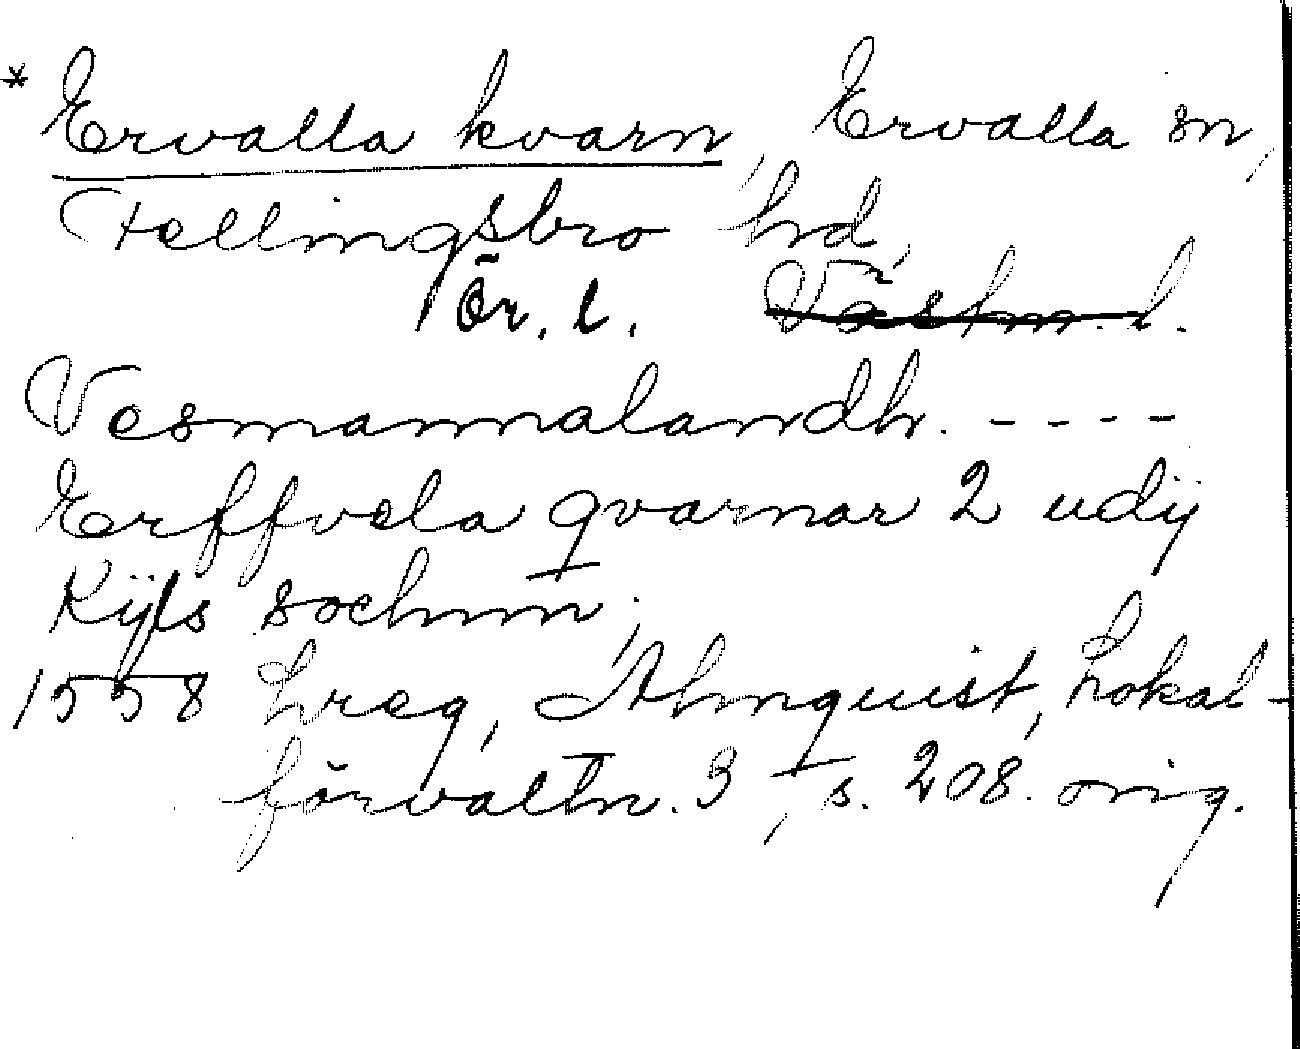 * Ervalla kvarn, Ervalla sn,
Fellingsbro hrd,
Ör. l. Västm. l.
Vesmannalandh. - - - -
Erffvela qvarnar 2 udij
Kijls sochnn;
1558 Lreg, Almquist, Lokal-
förvaltn. 3, s. 208. orig.